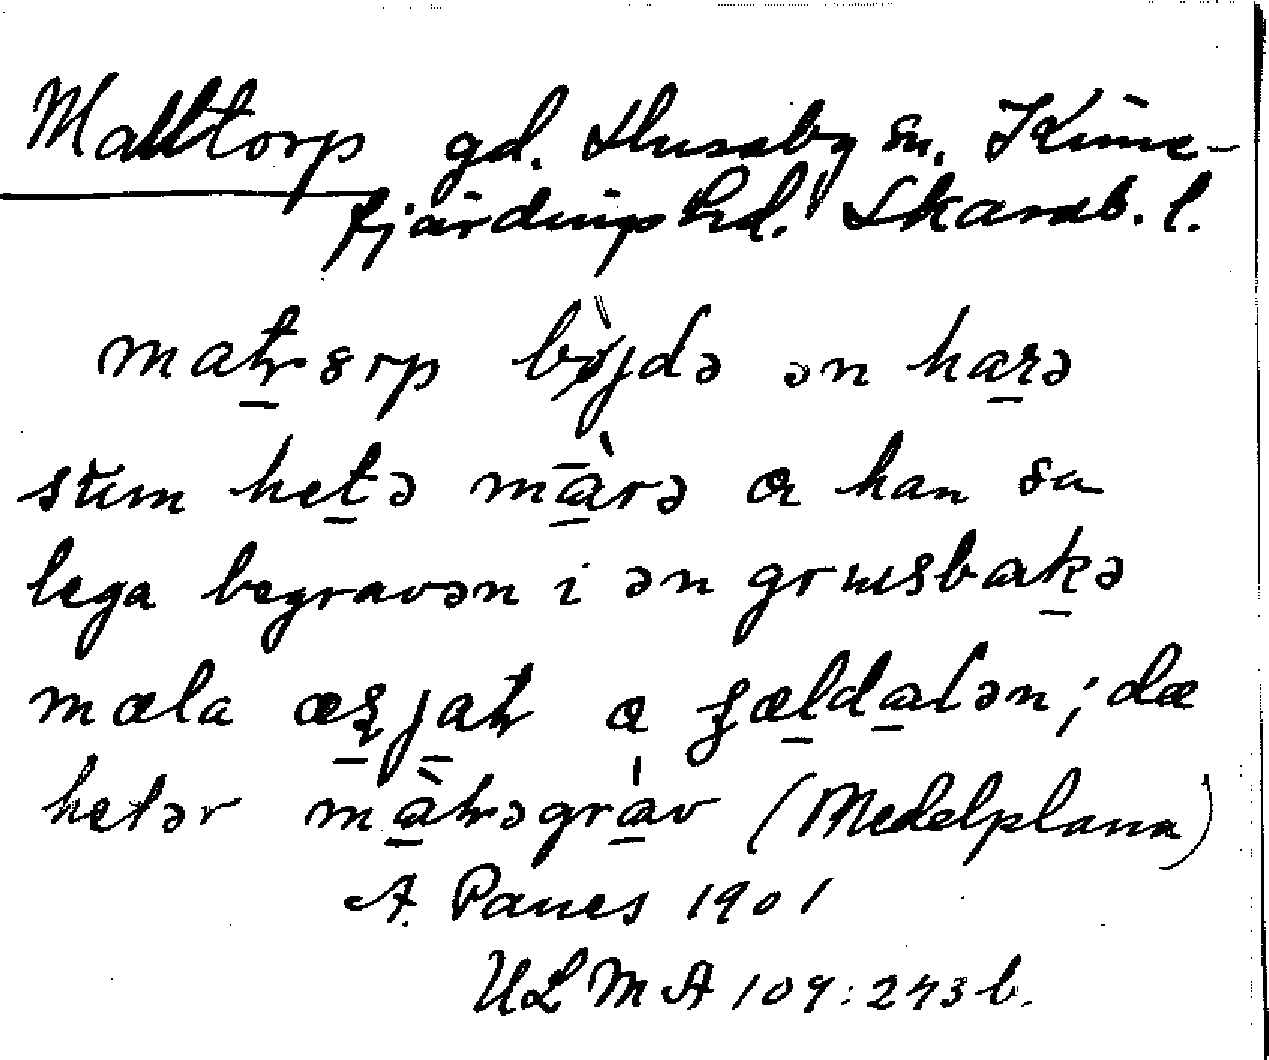 Malltorp gd. Husaby sn. Kinne-
fjärdings hd. Skarab. l.
maƫɞrp bỳjdə ən harə
stɯm hetə màrə ɑ han sa
lega begravən i ən grɯsbakə
mæla æʂjaƫ ɑ ʂældalən; dæ
hetər màƫəgráv (Medelplana)
A. Panes 1901
ULMA 109:243 b.